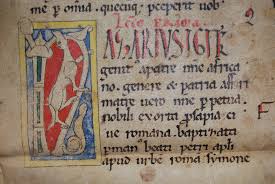 me p omia. quecuq peperit uob
AZARIVS IGIT
genit a patre nne africa
no. genere & patria affri
matre uero nne ppetua.
nobili exorta psapia ci
ue romana. baptizata
pman beati petri apli
apud urbe roma symone